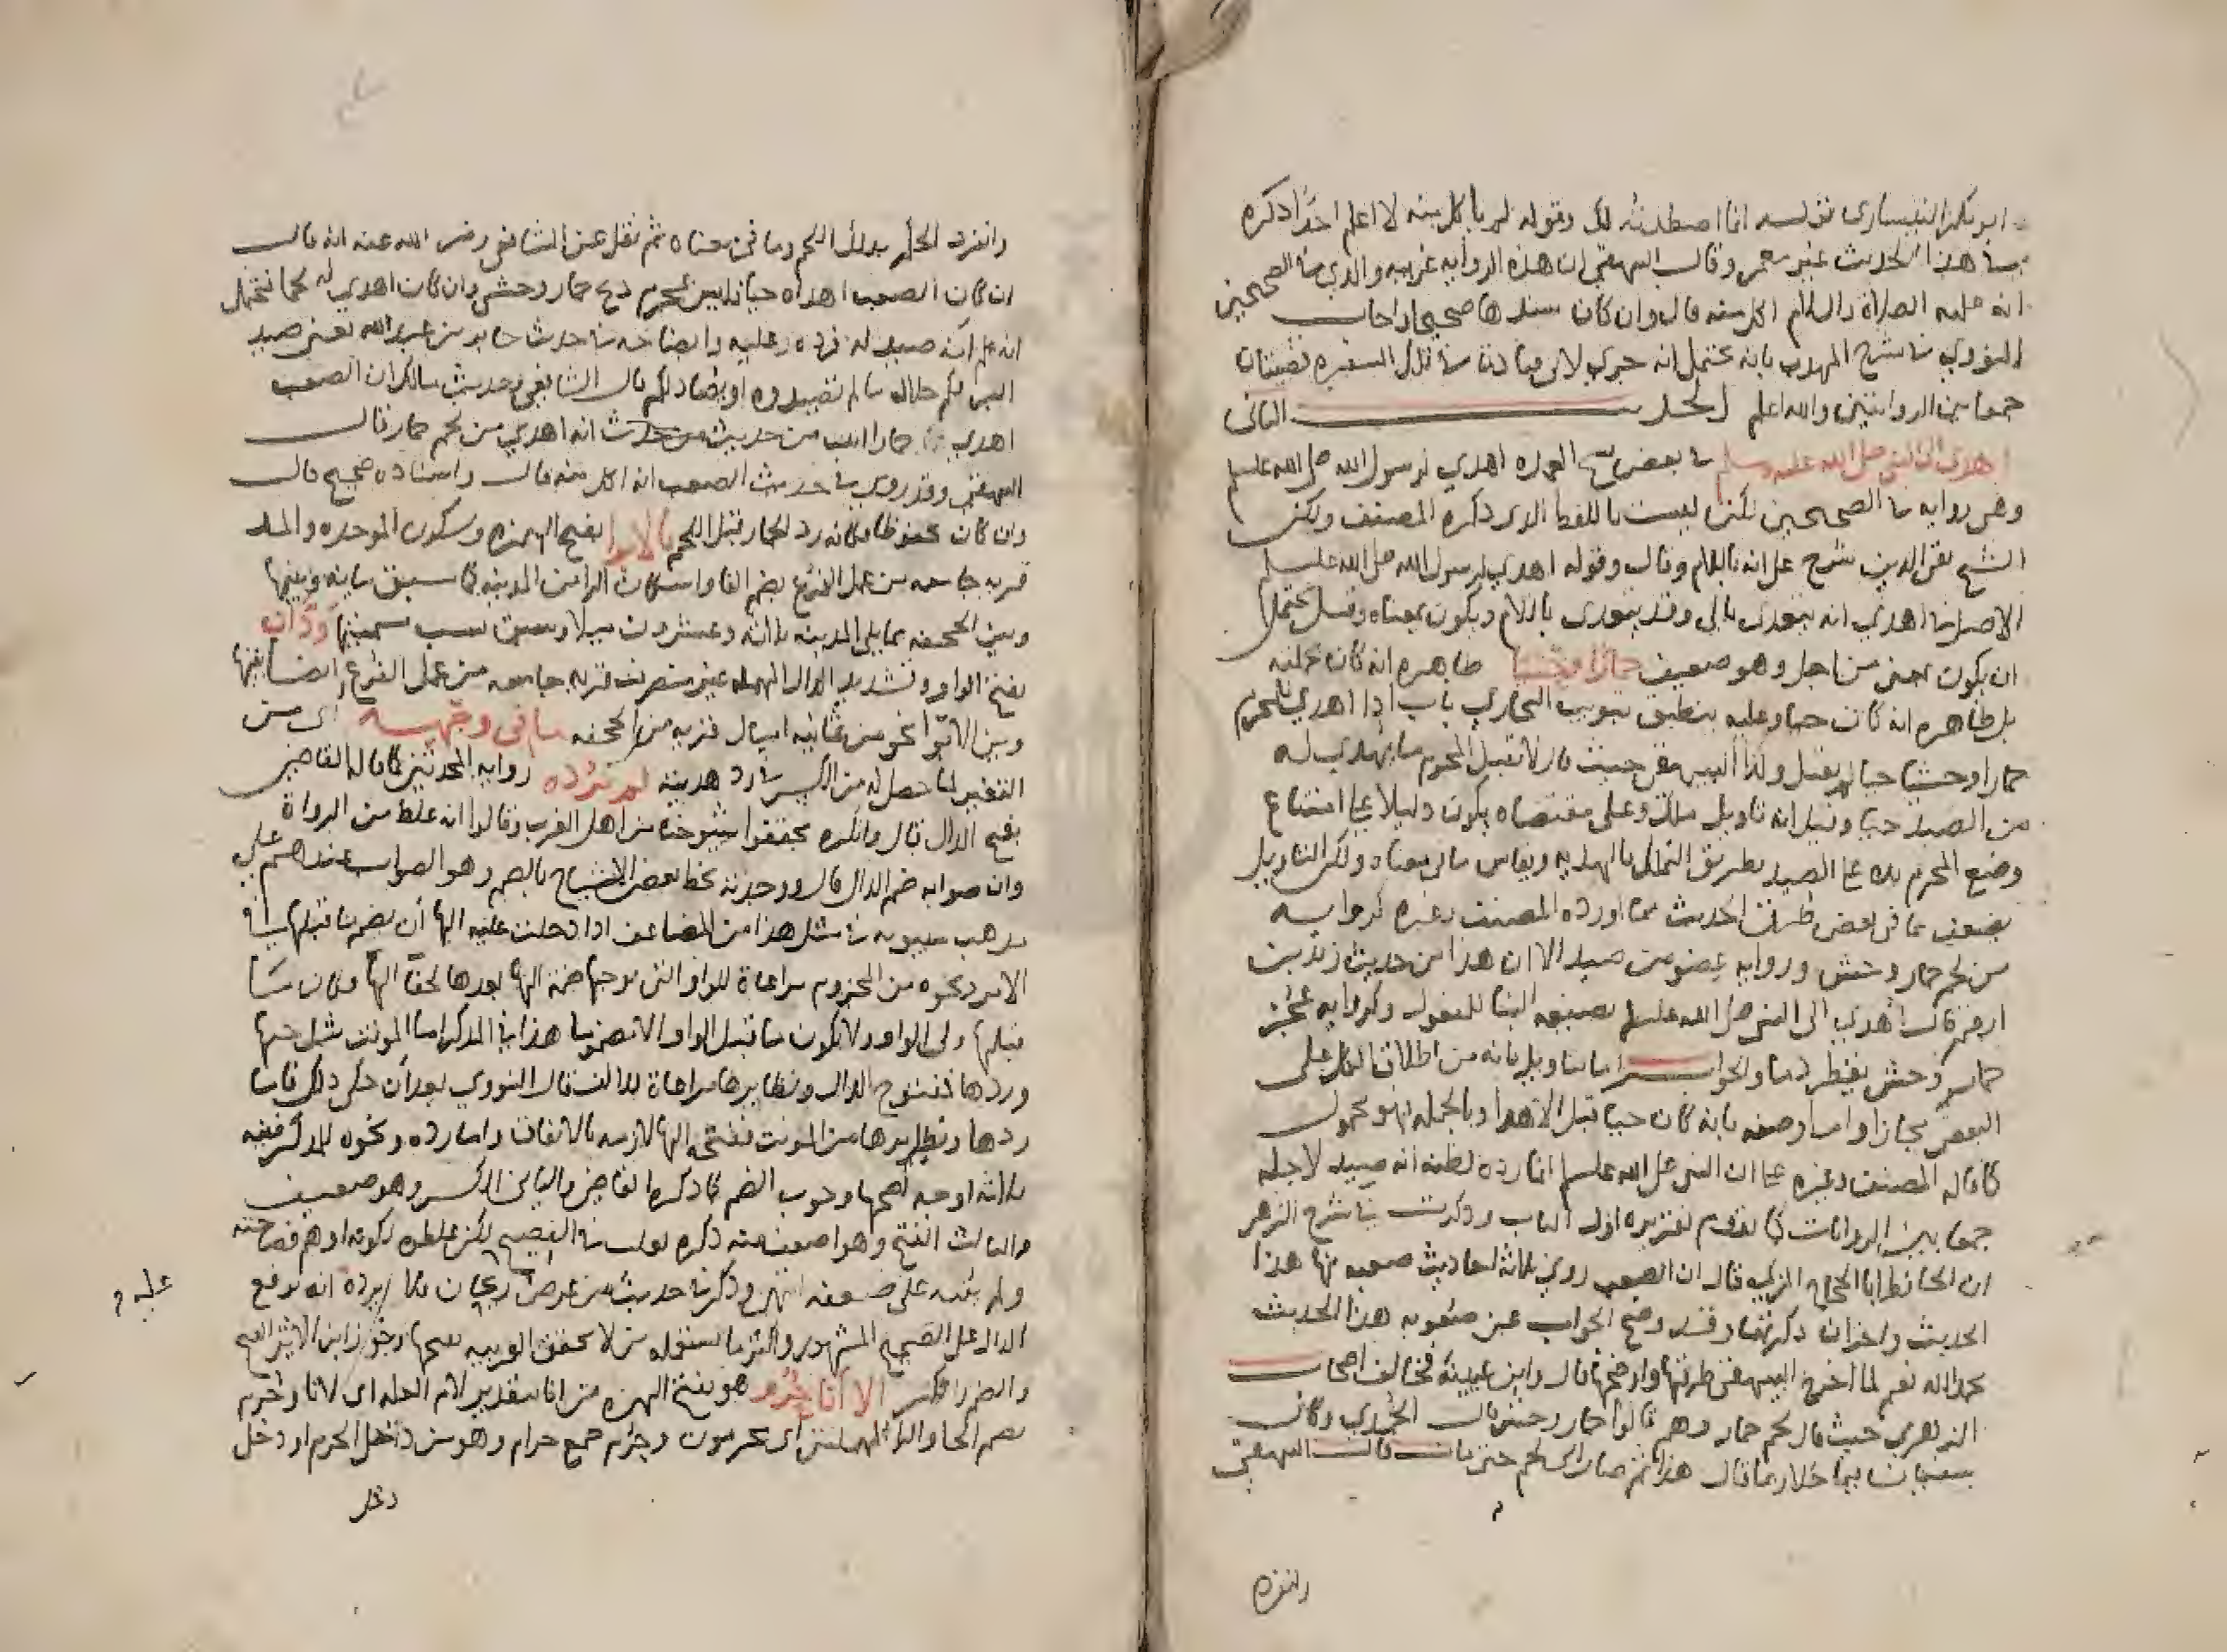 ابو بكر النيسابورى قوله انما اصطدته لك وقوله لم ياكل منه لا اعلم احدا ذكره
في هذا الحديث غير معمر وقال البيهقي ان هذه الرواية غريبه والذي في الصحيحين
انه عليه الصلاة والسلام اكل منه قال وان كان سندها صحيحا واجاب
النووي في شرح المهذب بانه يحتمل انه جرى لابي قتادة في تلك السفره قضيتان
جمعا بين الروايتين والله اعلم الحديث الثاني
اهدى الى النبي صلى الله عليه وسلم في بعض نسخ العمده اهدي لرسول الله صلى الله عليه وسلم
وهي رواية في الصحيحين لكنها ليست باللفظ الذي ذكره المصنف ولكن
الشيخ تقي الدين شرح على انه باللام وقال وقوله اهدي لرسول الله صلى الله عليه وسلم
الاصل في اهدي انه يتعدى بالى وقد يتعدى باللام ويكون بمعناه وقيل يحتمل
ان يكون بمعنى من اجل وهو ضعيف حمارا وحشيا ظاهره انه كان بجملته
بل ظاهره انه كان حيا وعليه ينطبق تبويب البخاري باب اذا اهدي للمحرم
حمارا وحشيا حيا لم يقبل وكذا البيهقي حيث قال لا يقبل المحرم ما يهدى له
من الصيد حيا وقيل انه تاويل مالك وعلى مقتضاه يكون دليلا على امتناع
وضع المحرم يده على الصيد بطريق التملك بالهدية ويقاس ما في معناه ولكن التاويل
يضعف بما في بعض طرق الحديث مما اورده المصنف وغيره كرواية
من لحم حمار وحش ورواية عضو من صيد الا ان هذا من حديث زيد بن
ارقم قال اهدي الى النبي صلى الله عليه وسلم بصيغة البنا للمفعول وكرواية عجز
حمار وحش يقطر دما والجواب اما بتاويل بانه من اطلاق الكل على
البعض مجازا واما وصفه بانه كان حيا قبل الاهدا وبالجملة فهو محمول
كما قاله المصنف وغيره على ان النبي صلى الله عليه وسلم انما رده لظنه انه صيد لاجله
جمعا بين الروايات كما تقدم تقريره اول الباب وذكرت في شرح الزهر
ان الحافظ ابا الحجاج المزي قال ان الصعب روى ثلاثة احاديث صعبه منها هذا
الحديث واخران ذكرتهما وقد وضح الجواب عن صعوبة هذا الحديث
بحمد الله نعم لما اخرج البيهقي طرقها واوضحها قال وابن عيينة فخالف اصحاب
الزهري حيث قال لحم حمار وهم قالوا حمار وحش قال الحميدي وكان
سفيان ربما قال هذا ثم صار الى لحم حتى مات قال البيهقي
وانفرد
وانفرد بذلك اللحم وما في معناه ثم نقل عن الشافعي رضي الله عنه انه قال
ان كان الصعب اهداه حيا فليس للمحرم ذبح حمار وحشي وان كان اهدي له لحما فيحتمل
انه علم انه صيد له فرده عليه وايضاحه في حديث جابر بن عبد الله يعني صيد
البر لكم حلال ما لم تصيدوه او يصاد لكم قال الشافعي وحديث مالك ان الصعب
اهدي حمارا اثبت من حديث من حدث انه اهدي من لحم حمار قال
البيهقي وقد روي في حديث الصعب انه اكل منه قال واسناده صحيح قال
وان كان محفوظا فكانه رد الحمار وقبل اللحم بالابوا بفتح الهمزه وسكون الموحده والمد
قرية جامعه من عمل الفرع بضم الفا واسكان الرا من المدينه كما سبق بيانه وبينها
وبين الجحفه مما يلي المدينه ثلاثة وعشرون ميلا وسبق سبب تسميتها ودان
بفتح الواو وتشديد الدال المهمله غير منصرف قرية جامعه من عمل الفرع ايضا بينها
وبين الابوا نحو من ثمانيه اميال قريبه من الجحفه ما في وجهه اى من
التغير لما حصل له من الكسر في رد هديته لم نرده رواية المحدثين كما قاله القاضي
بفتح الدال قال وانكره محققوا شيوخنا من اهل العربيه وقالوا انه غلط من الرواة
وان صوابه ضم الدال قال ووجدته بخط بعض الاشياخ بالضم وهو الصواب عندهم على
مذهب سيبويه في مثل هذا من المضاعف اذا دخلت عليه الها ان يضم ما قبلها في
الامر ونحوه من المجزوم مراعاة للواو التي توجبها ضمة الها بعدها لخفا الها فكان ما
قبلها ولي الواو ولا يكون ما قبل الواو الا مضموما هذا في المذكر اما المونث مثل حبها
وردها فمفتوح الدال ونظايرها مراعاة للالف قال النووي بعد ان حكى ذلك فاما
ردها ونظايرها من المونث ففتحة الها لازمه بالاتفاق واما رده ونحوه للمذكر ففيه
ثلاثه اوجه اصحها وجوب الضم كما ذكره القاضي والثاني الكسر وهو ضعيف
والثالث الفتح وهو اضعف منه ذكره ثعلب في الفصيح لكن غلطوه لكونه اوهم فصاحته
ولم ينبه على ضعفه انتهى وذكر في حديث من عرض عليه ريحان فلا يرده انه برفع
الدال على الصحيح المشهور واكثر ما يستعمله من لا يحقق العربيه بفتحها وجوز ابن الاثير الفتح
والضم والكسر الا انا حرم هو بفتح الهمزه من انا بتقدير لام العله اى لانا وحرم
بضم الحا والرا المهملتين اى محرمون وحرم جمع حرام وهو من دخل الحرم او دخل
دخل